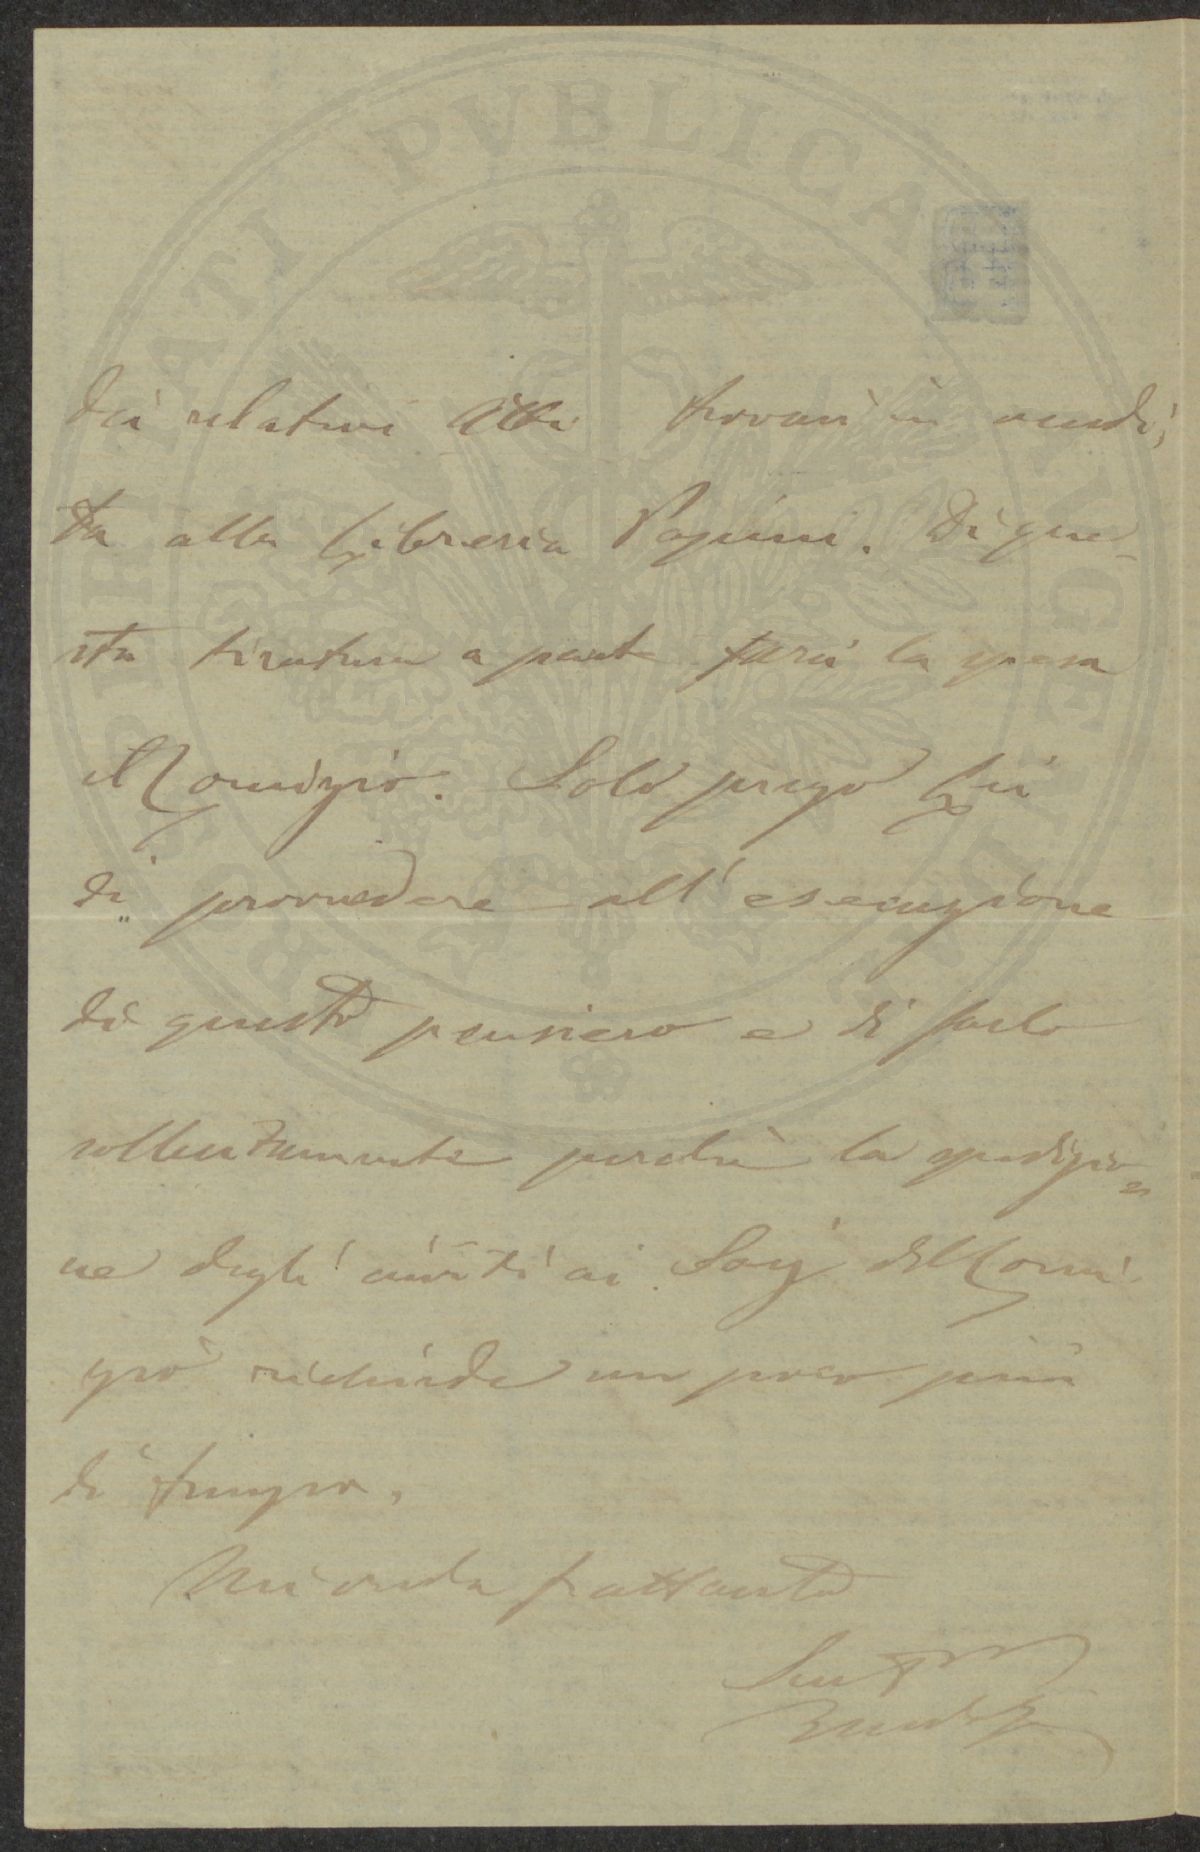 dei relativi Atti trovasi in vendi-
ta alla Libreria Pagnini. Di que-
sta tiratura a parte farà la spesa
Momigio. Solo prego Lei
di provvedere all'esecuzione
di questo pensiero e di farlo
sollecitamente perchè la spedizio=
ne degli inviti ai Soci di Momi
gio richiede un poco più
di tempo.
Mi creda frattanto